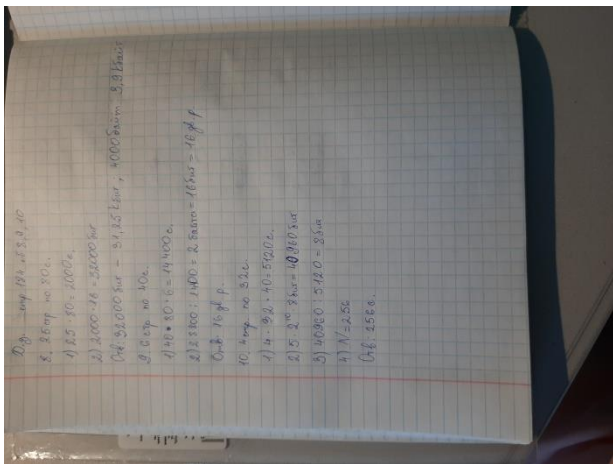 Д.з. стр 194 №8,9,10
8. 25стр по 80с.
1) 25·80=2000с.
2) 2000·16=32000бит
Отв: 32000бит - 31,25 Кбит; 4000байт 3,9 Кбайт
9. 6стр. по 40с.
1) 40·60·6=14400с.
2) 28800:1400=2 байта=16бит=16дв.р
Отв: 16 дв р.
10. 4стр. по 32с.
1) 4·32·40=5120с.
2) 5·2¹⁰·8бит=40960бит
3) 40960:5120=8бит
4) N=256
Отв: 256с.